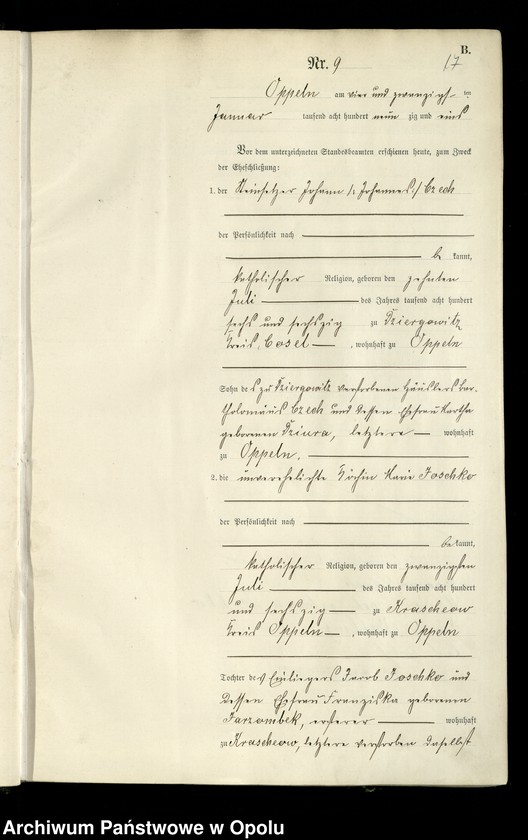 B.
Nr. 9
17
Oppeln am vier und zwanzigsten
Januar tausend acht hundert neunzig und eins
Vor dem unterzeichneten Standesbeamten erschienen heute, zum Zweck
der Eheschließung:
1. der Steinsetzer Johann /: Johannes :/ Czech
der Persönlichkeit nach
bekannt,
katholischer Religion, geboren den zehnten
Juli des Jahres tausend acht hundert
sechs und sechszig zu Dziergowitz
Kreis Cosel, wohnhaft zu Oppeln
Sohn des zu Dziergowitz verstorbenen Häuslers Bar-
tholomäus Czech und dessen Ehefrau Martha
geborenen Dziura, letztere wohnhaft
zu Oppeln.
2. die unverehelichte Köchin Marie Joschko
der Persönlichkeit nach
bekannt,
katholischer Religion, geboren den zwanzigsten
Juli des Jahres tausend acht hundert
und sechszig zu Krascheow
Kreis Oppeln, wohnhaft zu Oppeln
Tochter des Einliegers Jacob Joschko und
dessen Ehefrau Franziska geborenen
Jarzombek, ersterer wohnhaft
zu Krascheow, letztere verstorben daselbst
Archiwum Państwowe w Opolu